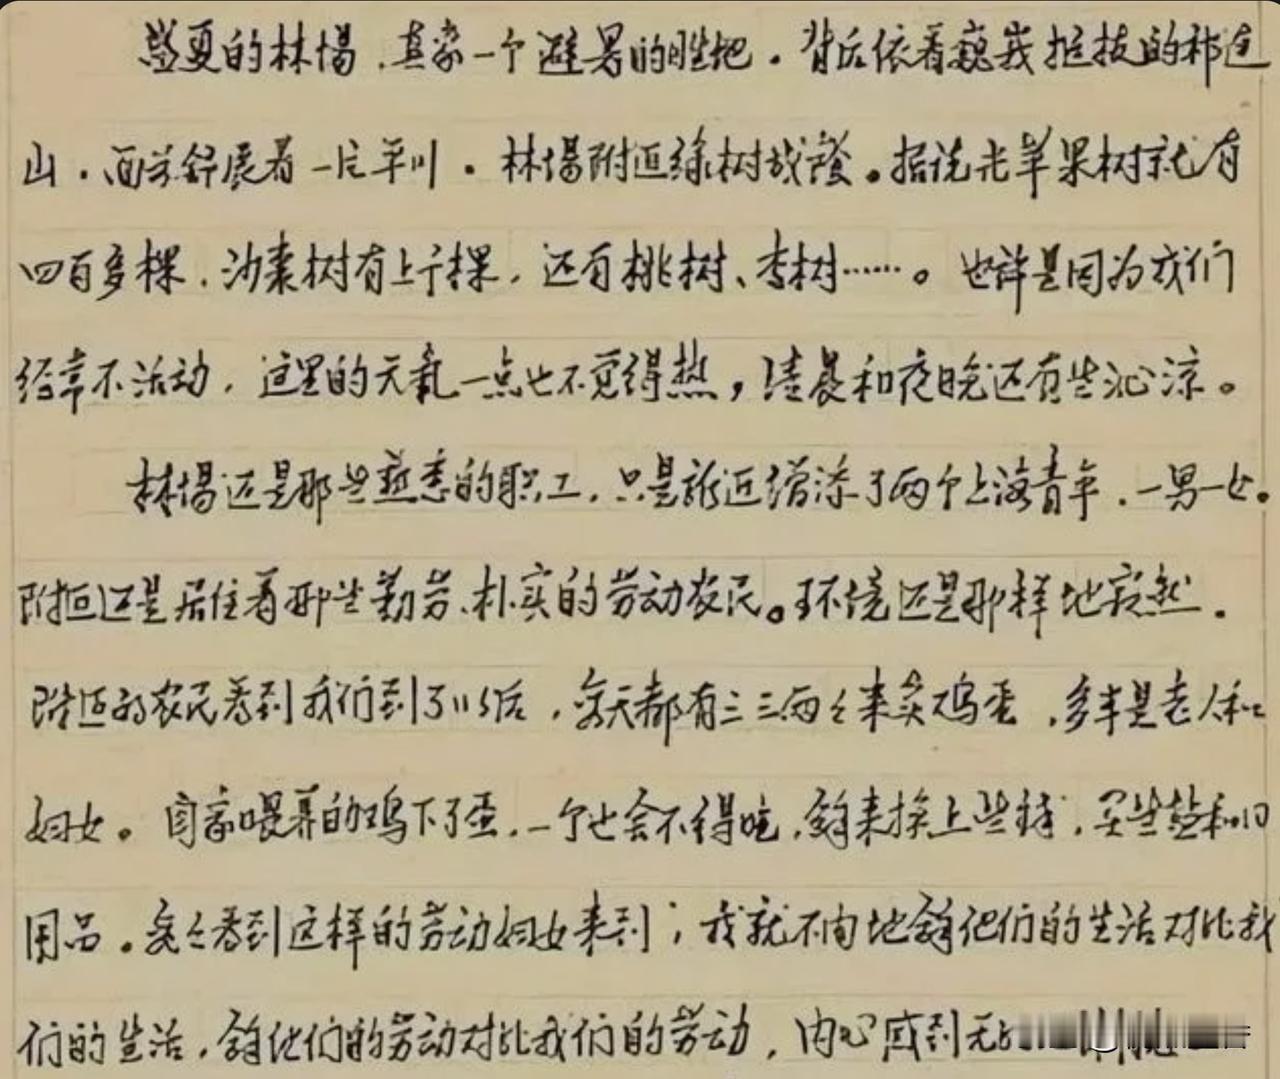 盛夏的林场，真象一个避暑的胜地。背后依着巍峨挺拔的祁连
山，面前舒展着一片平川。林场附近绿树成荫。据说光苹果树就有
四百多棵，沙枣树有上千棵，还有桃树、杏树……。也许是因为我们
经常不活动，这里的天气一点也不觉得热，清晨和夜晚还有些沁凉。
林场还是那些熟悉的职工，只是新近增添了两个上海青年，一男一女。
附近还是居住着那些勤劳、朴实的劳动农民。环境还是那样地寂然。
附近的农民看到我们到了以后，每天都有三三两々来卖鸡蛋，多半是老人和
妇女。自家喂养的鸡下了蛋，一个也舍不得吃，拿来换上些钱，买些盐和日
用品。每々看到这样的劳动妇女来到；我就不由地拿他们的生活对比我
们的生活，拿他们的劳动对比我们的劳动，内心感到无